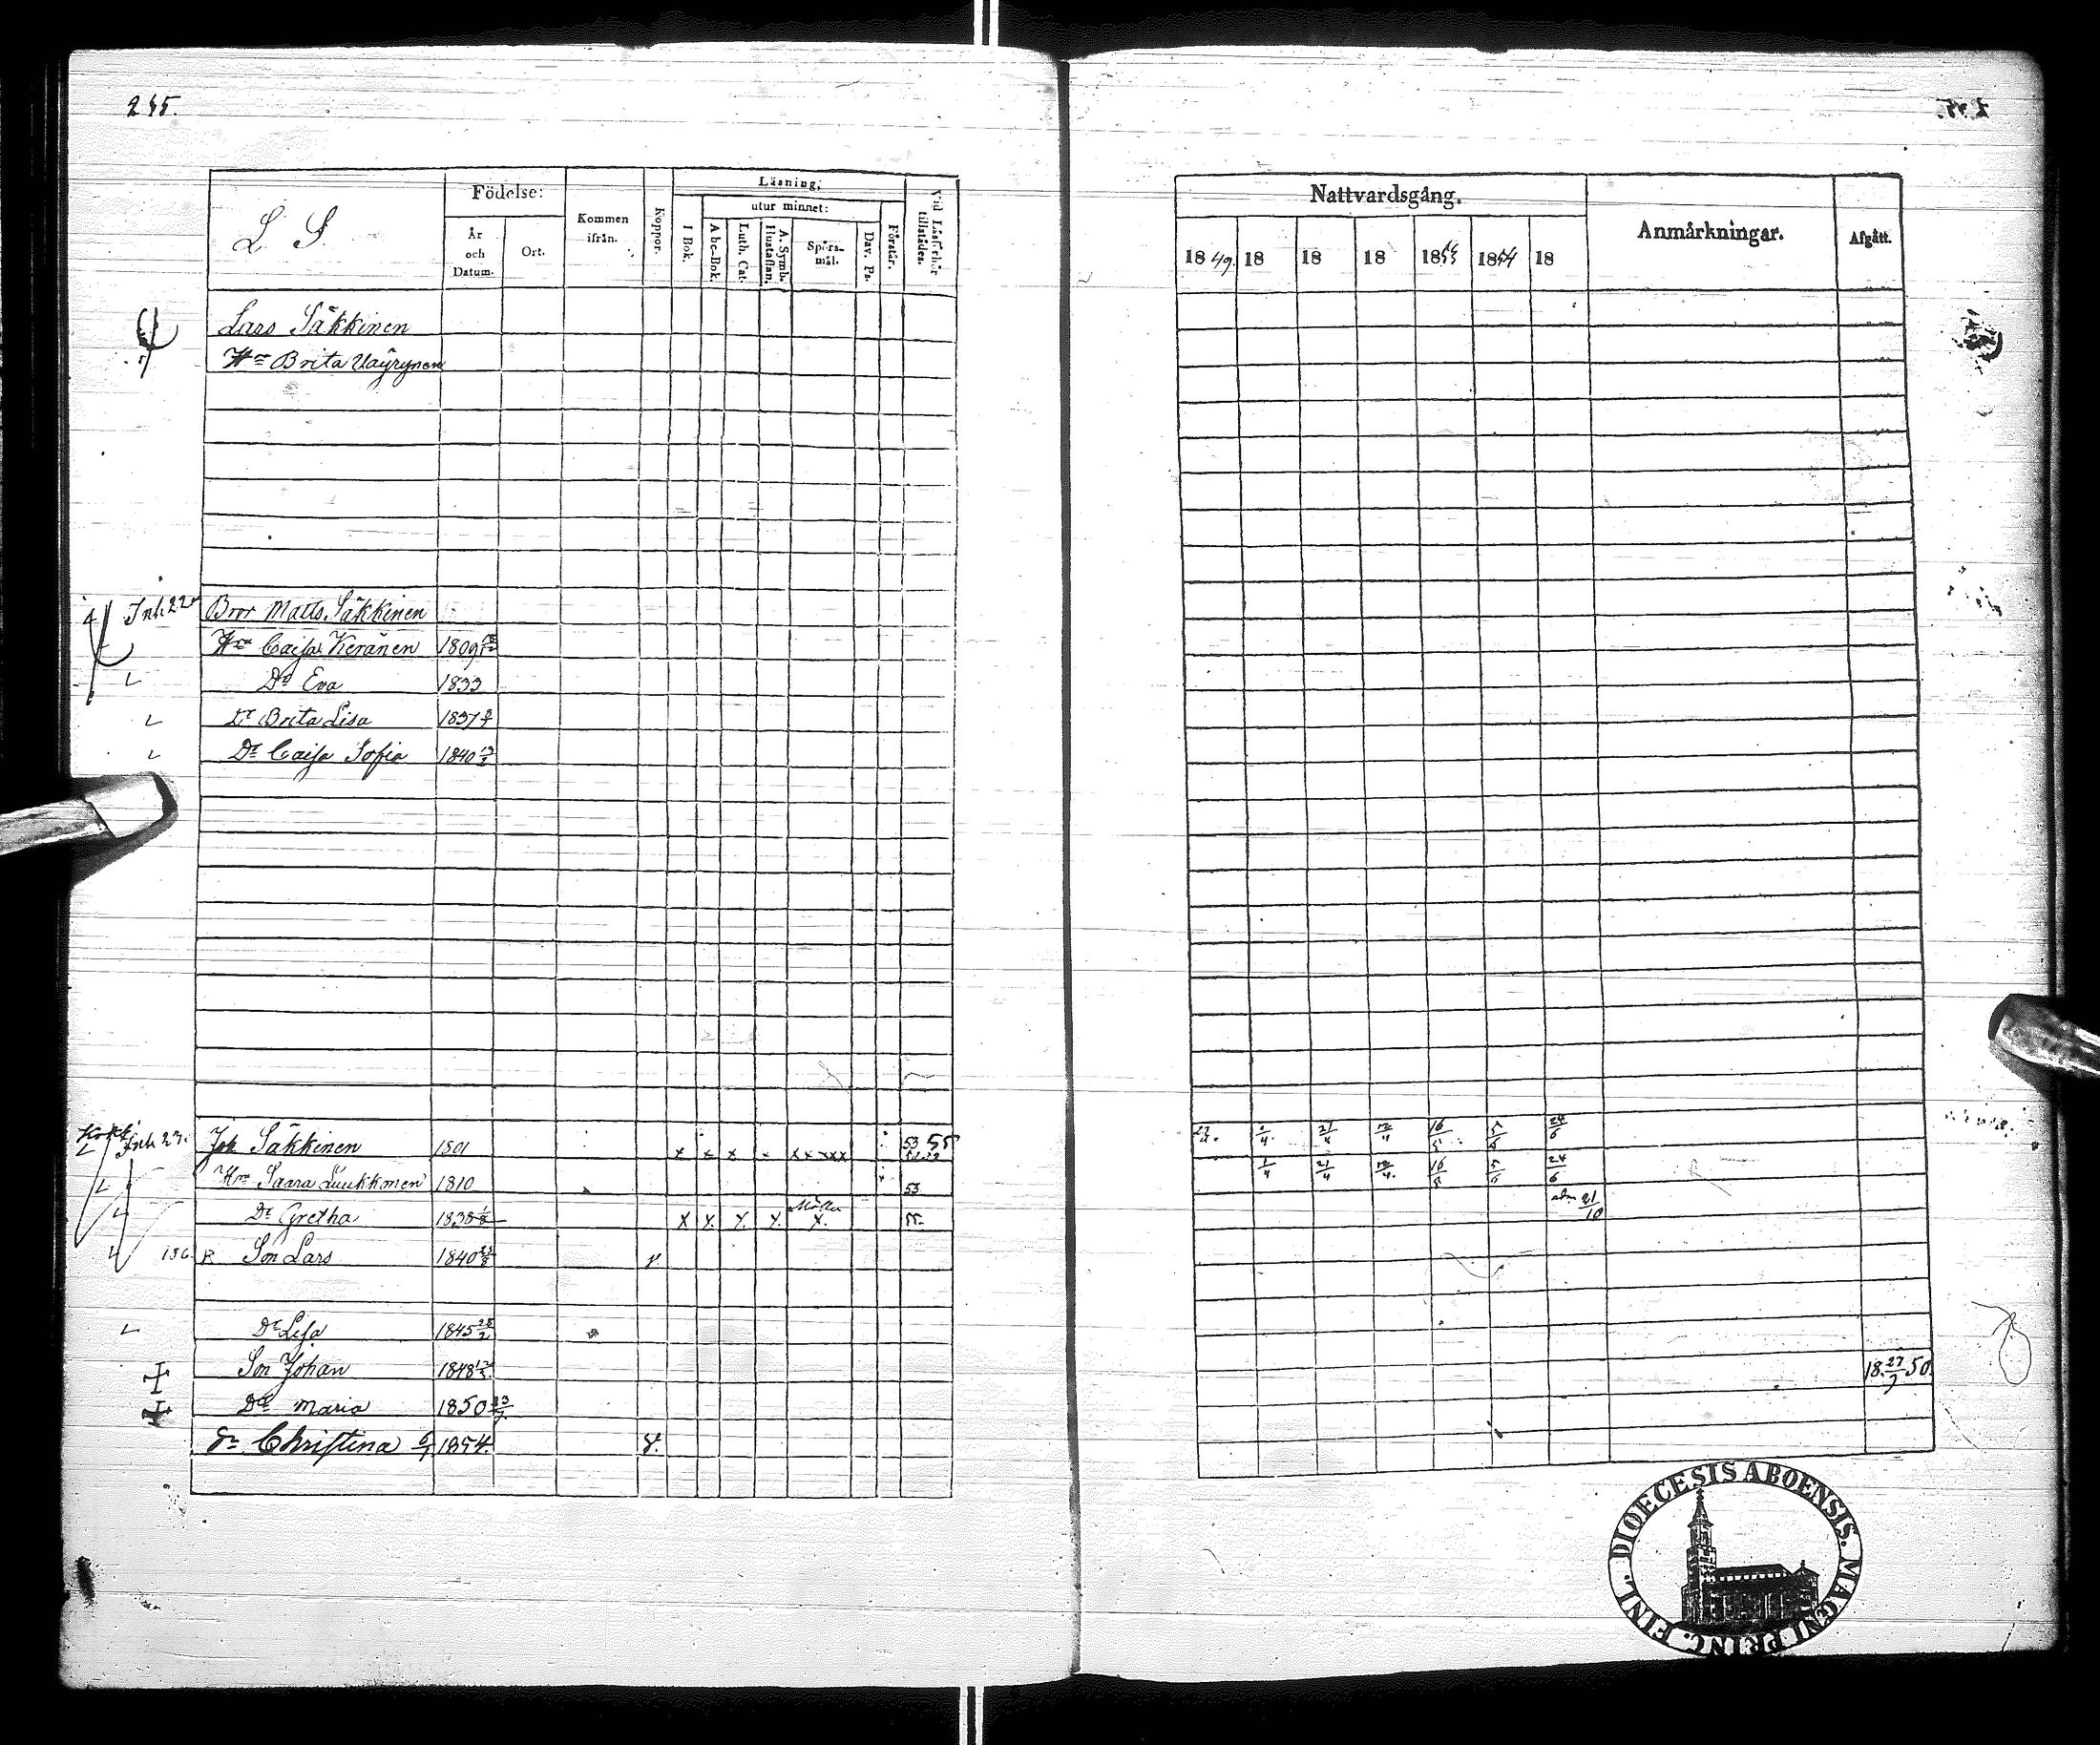 245.
L. S.
Födelse:
År och Datum.
Ort.
Kommen ifrån.
Koppor.
Läsning;
I Bok.
utur minnet:
Abc-Bok.
Luth. Cat.
A. Symb. Hustaflan.
Spörs-mål.
Dav. Ps.
Förstår.
Vid Läsförhör tillstädes.
Nattvardsgång.
1849. 18 18 18 1855 1854 18
Anmärkningar.
Afgått.
Lars Säkkinen
Hru Brita Väyrynen
Inh. 22 Bror Matts. Säkkinen
Hru Caisa Keränen 1809
Dr Eva 1833
Dr Brita Lisa 1837
Dr Caisa Sofia 1840
Inh 23. Joh Säkkinen 1801 x x x x x x xxx 53 55
4. 21/4 12/4 16/5 5/6 24/6
Hru Saara Luukkonen 1810 53
1/4 21/4 12/4. 16/5 5/6 24/6
Dr Gretha 1838 X Y. Y. Y. X. 55. adm 21/10
156. R Son Lars 1840 25/8 v
Dr Lisa 1845 28/2
Son Johan 1848 18 27/7 50.
Dr Maria 1850 23/7.
Dr Christina 6/7 1854. v.
DIOECESIS ABOENSIS. MAGNI PRINC. FINL.